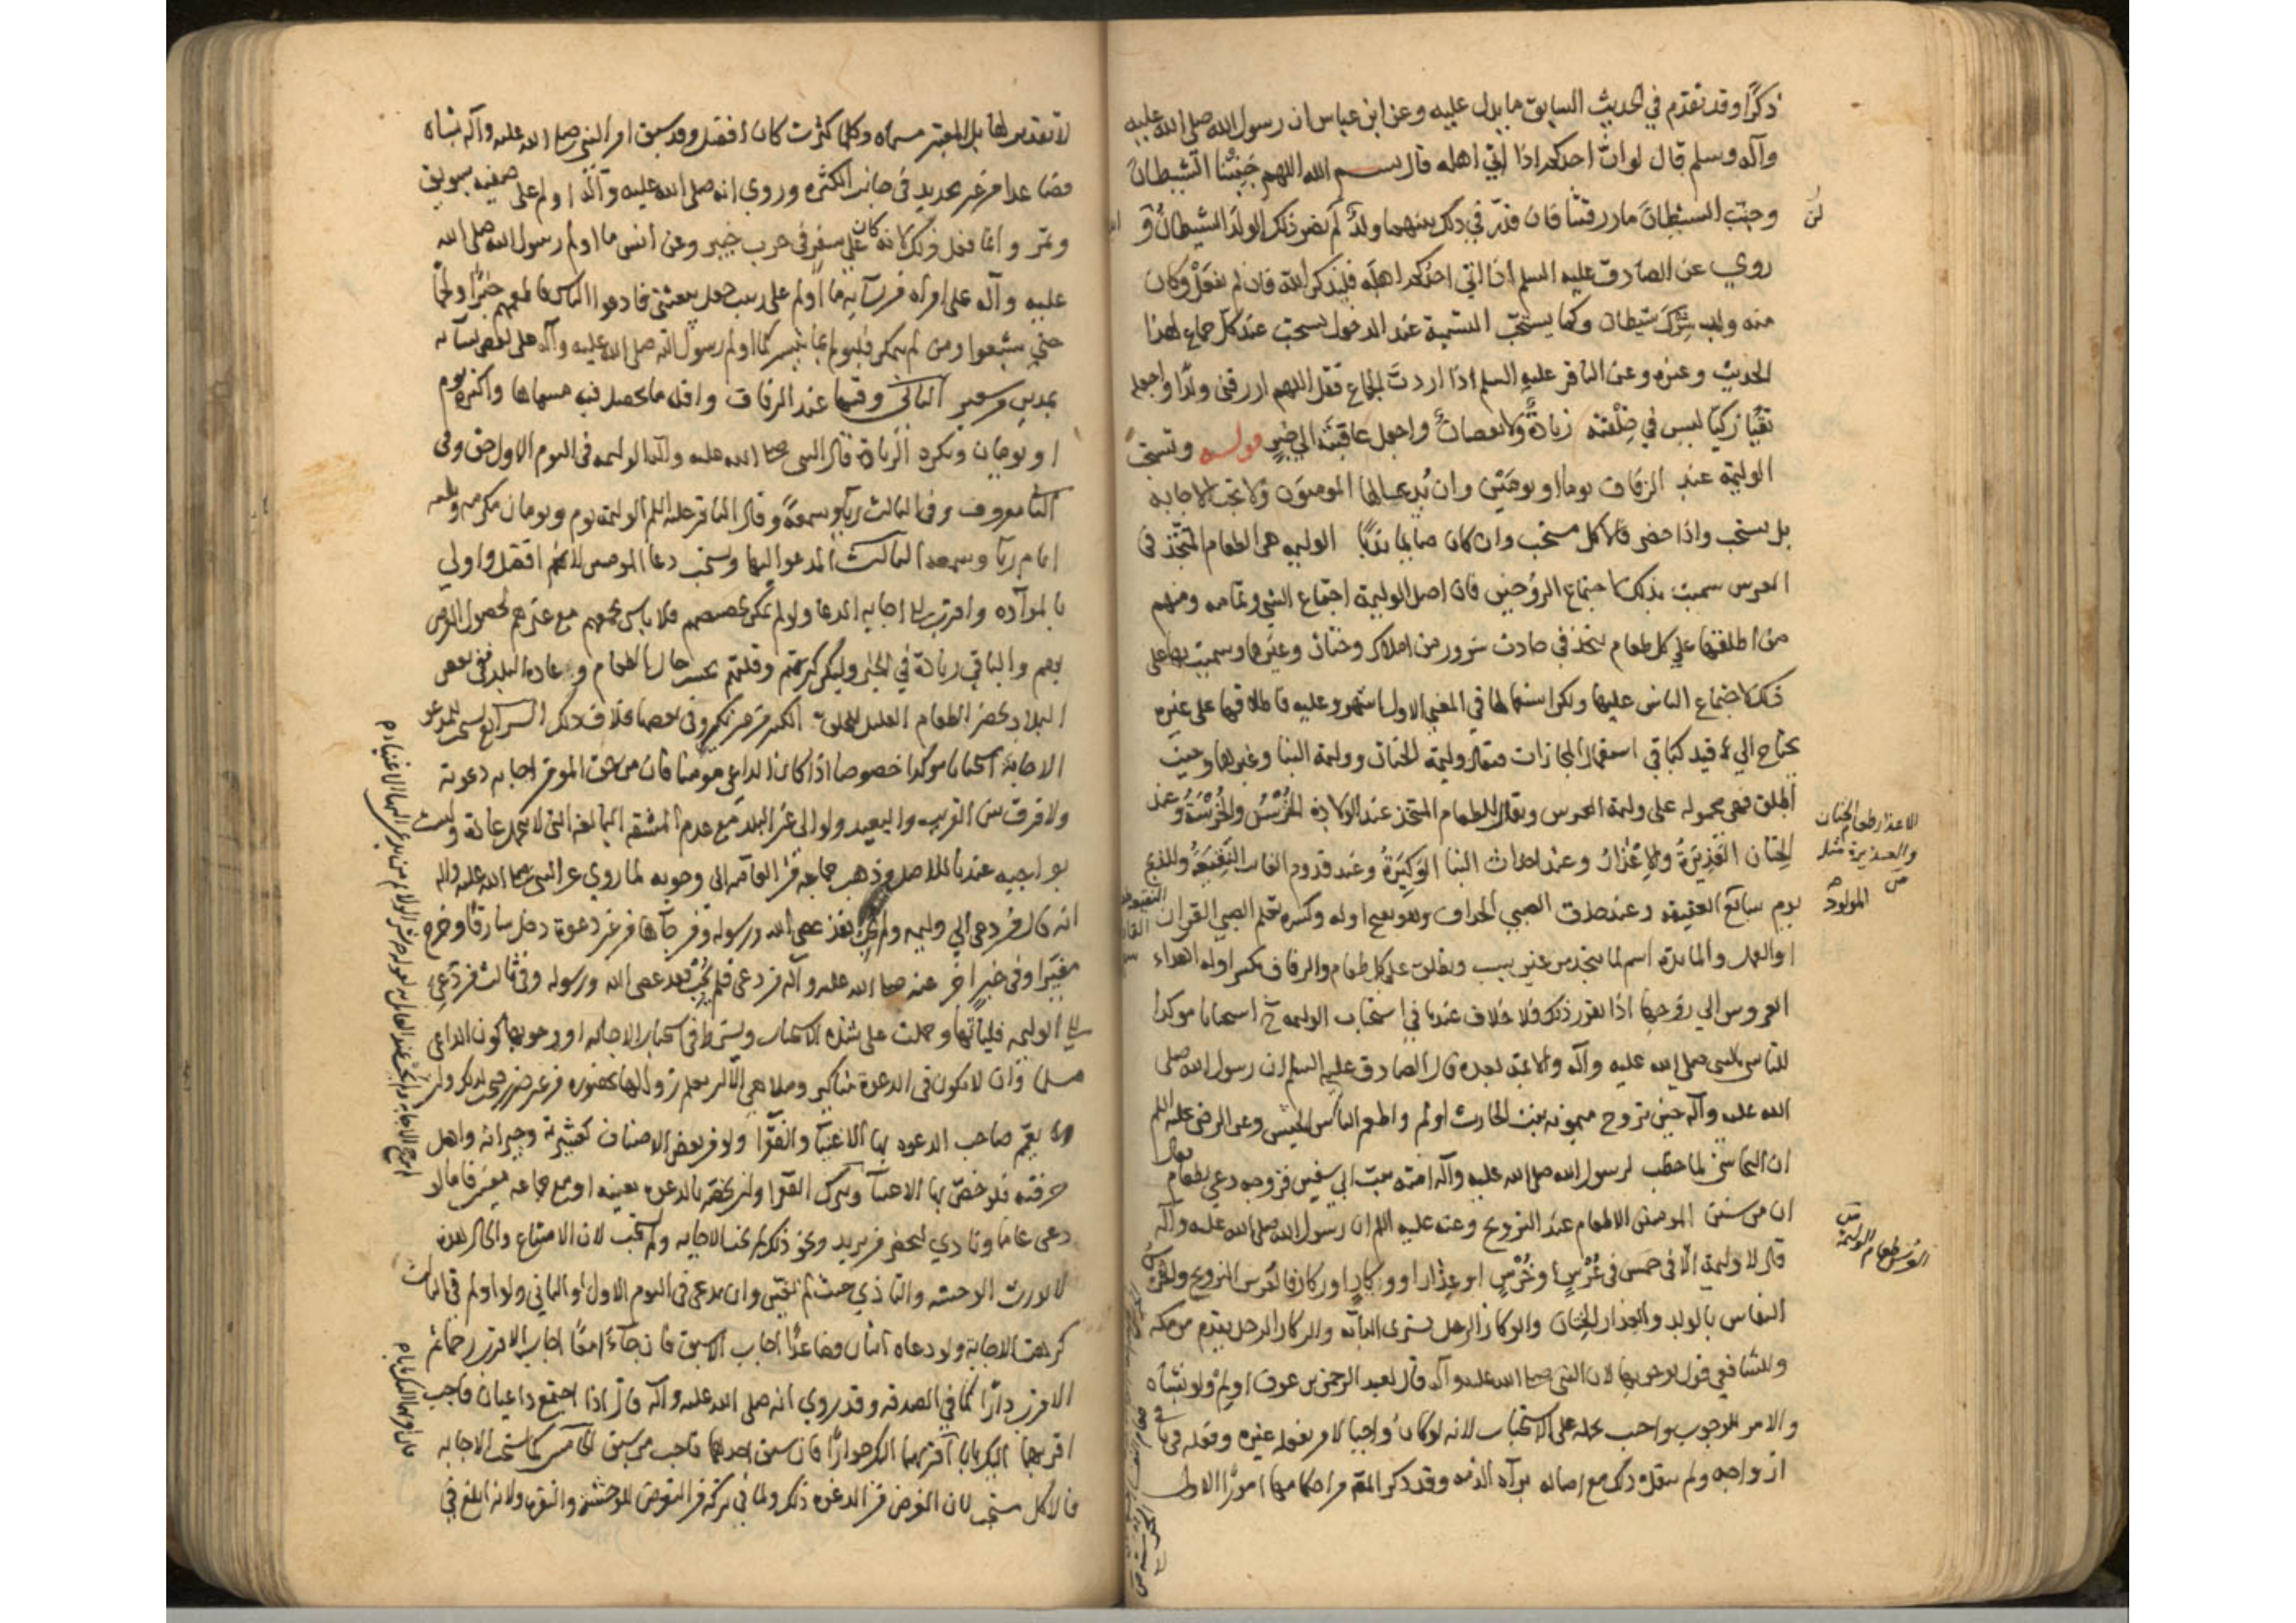 ذكرًا وقد تقدّم في الحديث السابق ما يدل عليه وعن ابن عباس ان رسول الله صلى الله عليه
وآله وسلم قال لو ان احدكم اذا اتى اهله قال بسم الله اللهم جَنِّبْنا الشيطانَ
وجنّب الشيطانَ ما رزقتنا فان قدّر في ذلك بينهما ولدٌ لم يضر ذلك الولدَ الشيطانُ و
روي عن الصادق عليه السلم اذا اتى احدكم اهله فليذكر الله فان لم يفعَلْ وكان
منه ولد شِرْكَ شيطان وكما يستحبّ التسمية عند الدخول يستحب عند كل جماع لهذا
الحديث وغيره وعن الباقر عليه السلم اذا اردتَ الجماع فقل اللهم ارزقني ولدًا واجعله
تقيًّا زكيًّا ليس في خِلْقته زيادةٌ ولا نقصانٌ واجعل عاقبتَه الى خيرٍ قوله وتستحب
الوليمة عند الزفاف يوما او يومَيْن وان يُدعى لها المومنون ولا تجب الاجابة
بل يستحب واذا حضر فالاكل مستحب وان كان صايما ندبًا الوليمه هي الطعام المتّخذ فى
العرس سميت بذلك لاجتماع الزوجين فان اصل الوليمة اجتماع الشي وتمامه ومنهم
من اطلقها على كل طعام يتخذ في حادث سرور من املاك وختان وغيرهما وسميت بها على
ذلك لاجتماع الناس عليها ولكن استعمالها في المعنى الاول اشهر وعليه فاطلاقها على غيره
يحتاج الى قيد كباقي استعمال المجازات فيقال وليمة الختان ووليمة البنا وغيرها وحيث
اطلق فهي محموله على وليمة العرس ويقال للطعام المتخذ عند الولادة الخُرْسُ والخُرْسَةُ وعند
الختان العَذِيرَةُ والاِعْذارُ وعند احداث البنا الوَكِيْرَةُ وعند قدوم الغايب النَّقِيعَةُ وللذبح
يوم سابع العقيقة وعند حذق الصبي الحذاق وهو بفتح اوله وكسره تعلم الصبي القران
او العمل والمادبة اسم لما يتخذ من غير سبب ويطلق على كل طعام والزفاف بكسر اوله اهداء
العروس الى زوجها اذا تقرر ذلك فلا خلاف عندنا في استحباب الوليمه ح استحبابا موكدا
للتاسي بالنبي صلى الله عليه وآله والائمة بعده قال الصادق عليه السلم ان رسول الله صلى
الله عليه وآله حين تزوج ميمونه بنت الحارث اولم واطعم الناس الحيس وعن الرضى عليه السلم
ان النجاشي لما خطب لرسول الله صلى الله عليه وآله امنة بنت ابي سفين فزوجه دعى بطعام
ان من سنن المرسلين الاطعام عند التزويج وعنه عليه السلم ان رسول الله صلى الله عليه وآله
قال لا وليمة الا في خمس في عُرْسٍ او خُرْسٍ او عِذار او وِكارٍ او ركاز فالعرس التزويج والخرس
النفاس بالولد والعذار الختان والوكار الرجل يشترى الدار والركاز الرجل يقدم من مكه
وللشافعي قول بوجوبها لان النبي صلى الله عليه وآله قال لعبد الرحمن بن عوف اولِمْ ولو بشاه
والامر للوجوب واجيب بحمله على الاستحباب لانه لو كان واجبا لامر بفعله غيره وفعله في باقي
ازواجه ولم ينقل ذلك مع اصاله برآه الذمه وقد ذكر المص من احكامها امورًا الاول
الاعذار طعام الختان
والعذيرة مثله
ص
المولود
العرس طعام الوليمة
لا تقدير لها بل المعتبر مسماه وكلما كثرت كان افضل وقد سبق امر النبي صلى الله عليه وآله بشاه
فصاعدا من غير تحديد في جانب الكثره وروي انه صلى الله عليه وآله اولم على صفيه بسويق
وتمر وانما فعل ذلك لانه كان على سفر في حرب خيبر وعن انس ما اولم رسول الله صلى الله
عليه وآله على امراه من نسآيه ما اولم على زينب جعل يبعثني فادعوا الناس فاطعمهم خبزًا ولحمًا
حتى شبعوا ومن لم يتمكن فليولم بما تيسر كما اولم رسول الله صلى الله عليه وآله على بعض نسآيه
بمدين من شعير الثاني وقتها عند الزفاف واقل ما يحصل فيه مسماها واكثره يوم
او يومان وتكره الزيادة قال النبي صلى الله عليه وآله الوليمه فى اليوم الاول حق وفى
الثاني معروف وفي الثالث رياء وسمعةٌ وقال الباقر عليه السلم الوليمة يوم ويومان مكرمه وثلثه
ايام ريا وسمعه الثالث المدعو اليها ويستحب دعا المومنين لانهم افضل واولى
بالموآده واقرب الى اجابه الدعا ولو لم يمكن تخصيصهم فلا باس بجمعهم مع غيرهم لحصول الغرض
بهم والباقي زيادة في الخير وليكن كثرتهم وقلتهم بحسب حال الطعام وعاده البلد ففي بعض
البلاد يحضر الطعام القليل للخلق الكثير من غير نكير وفي بعضها خلاف ذلك الرابع يستحب للمدعو
الاجابة استحبابا موكدا خصوصا اذا كان الداعي مومنا فان من حق المومن اجابه دعوته
ولا فرق بين القريب والبعيد ولو الى غير البلد مع عدم المشقه البالغه التى لا يتحمل عادة وليست
بواجبه عندنا للاصل وذهب جماعه من العامه الى وجوبه لما روي عن النبي صلى الله عليه وآله
انه قال من دعي الى وليمه ولم يجب فقد عصى الله ورسوله ومن جآها من غير دعوة دخل سارقًا وخرج
مغيرًا وفي خبرٍ اخر عنه صلى الله عليه وآله من دعي فلم يُجب فقد عصى الله ورسوله وفي ثالث من دُعي
الى الوليمه فلياتها وحملت على شدة الاستحباب ويشترط في استحباب الاجابه او وجوبها كون الداعي
مسلما وان لا يكون في الدعوة مناكير وملاهي الا ان يعلم زوالها بحضوره من غير ضرر فيجب لذلك وان
يعمّ صاحب الدعوه بها الاغنيآ والفقرآ ولو من بعض الاصناف كعشيرته وجيرانه واهل
حرفته فلو خصّ بها الاغنيآ وترك الفقرآ وان يخصّه بالدعوه بعينه او مع جماعه معينين فاما لو
دعى عاما ونادي ليحضر من يريد ونحو ذلك لم تجب الاجابه ولم تستحب لان الامتناع والحال هذه
لا يورث الوحشه والتاذي حيث لم تعيّن وان يدعى في اليوم الاول او الثاني ولو اولم في الثالث
كرهت الاجابة ولو دعاه اثنان فصاعدًا اجاب الاسبق فان جآءا معًا اجاب الاقرب رحما ثم
الاقرب دارًا كما في الصدقه وقد روي انه صلى الله عليه وآله قال اذا اجتمع داعيان فاجب
اقربهما اليك بابا فان اقربهما اليك جوارًا فان سبق احدهما فاجب من سبق الخامس كما تستحب الاجابه
فالاكل مستحب لان الغرض من الدعوه ذلك ولما في تركه من التعرض للوحشه والنفره ولانه ابلغ في